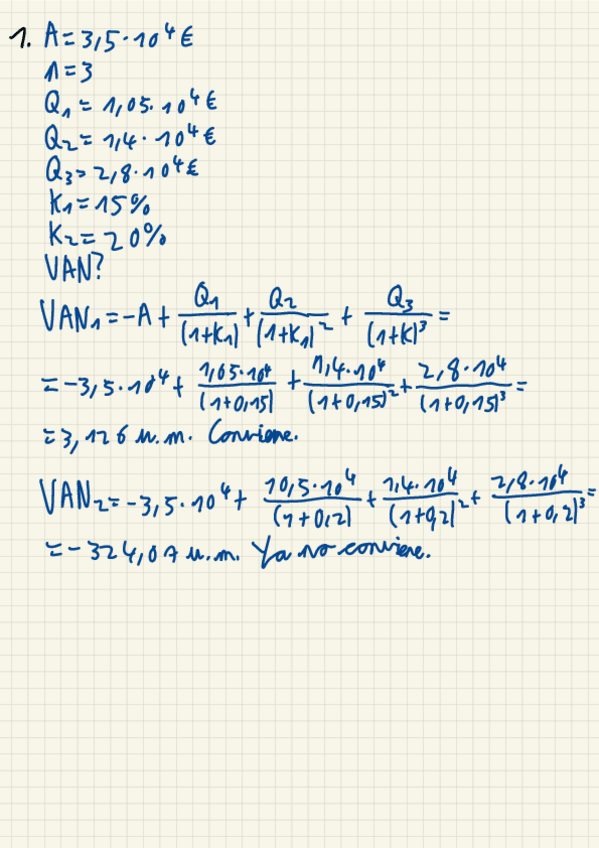 1. A = 3,5·10⁴ €
n = 3
Q₁ = 1,05·10⁴ €
Q₂ = 1,4·10⁴ €
Q₃ = 2,8·10⁴ €
K₁ = 15%
K₂ = 20%
VAN?
VAN₁ = -A + Q₁/(1+K₁) + Q₂/(1+K₁)² + Q₃/(1+K)³ =
= -3,5·10⁴ + 1,05·10⁴/(1+0,15) + 1,4·10⁴/(1+0,15)² + 2,8·10⁴/(1+0,15)³ =
= 3,126 u.m. Conviene.
VAN₂ = -3,5·10⁴ + 10,5·10⁴/(1+0,2) + 1,4·10⁴/(1+0,2)² + 2,8·10⁴/(1+0,2)³ =
= -324,07 u.m. Ya no conviene.